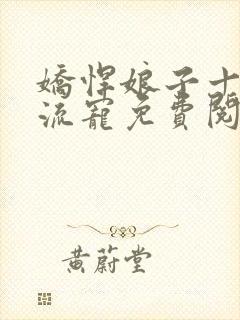 嬌悍娘子十
流寵免費閱
黃蔚堂